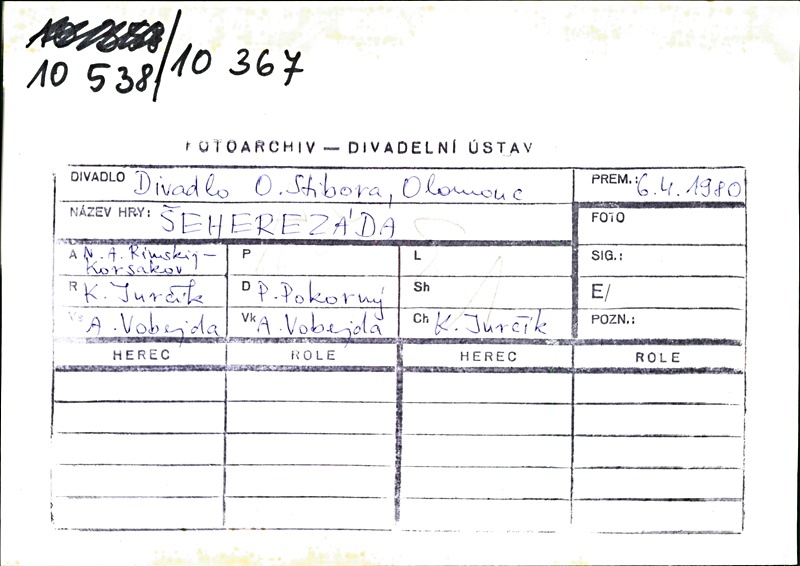 10 538/10 367
FOTOARCHIV — DIVADELNÍ ÚSTAV
DIVADLO Divadlo O. Stibora, Olomouc PREM.: 6.4.1980
NÁZEV HRY: ŠEHEREZÁDA FOTO
A N. A. Rimskij-Korsakov P L SIG.:
R K. Jurčík D P. Pokorný Sh E/
Vs A. Vobejda Vk A. Vobejda Ch K. Jurčík POZN.:
HEREC ROLE HEREC ROLE